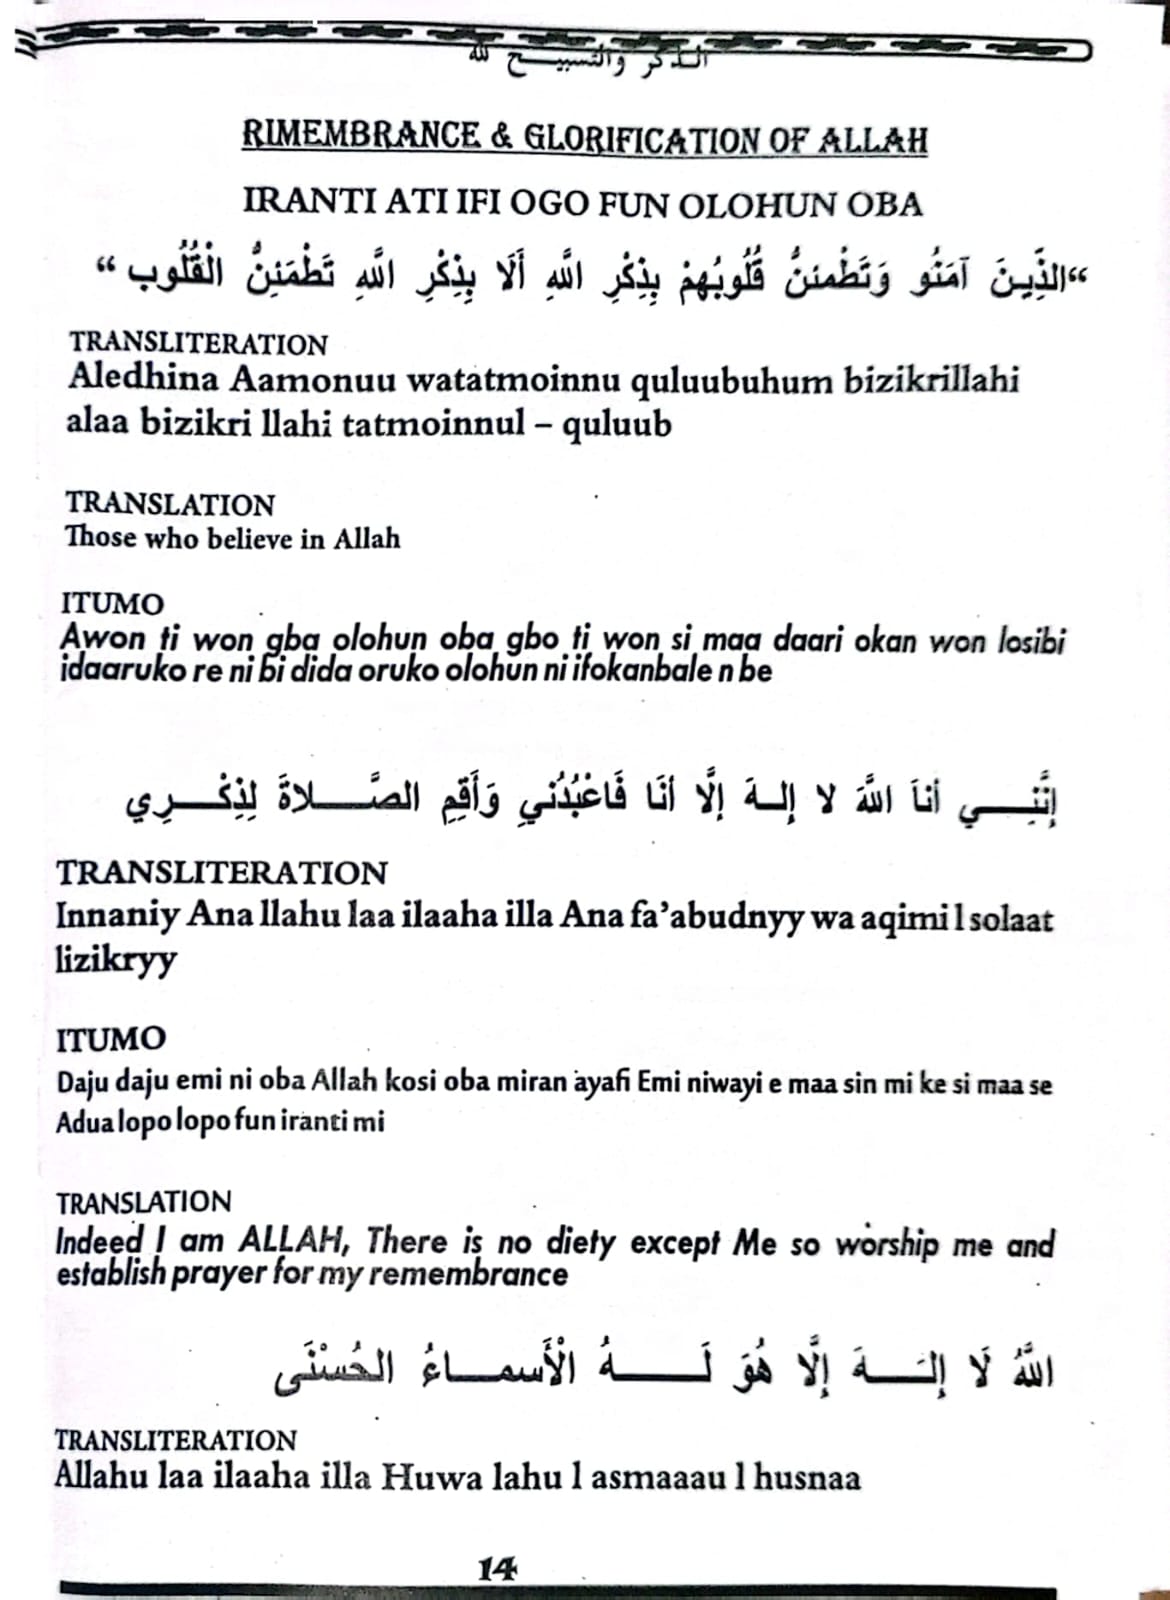 الذكر والتسبيح لله
RIMEMBRANCE & GLORIFICATION OF ALLAH
IRANTI ATI IFI OGO FUN OLOHUN OBA
“الذِّينَ آمَنُو وَتَطْمئنُّ قُلُوبُهمْ بِذِكْرِ اللَّهِ أَلَا بِذِكْرِ اللَّهِ تَطْمَئِنُّ الْقُلُوب “
TRANSLITERATION
Aledhina Aamonuu watatmoinnu quluubuhum bizikrillahi
alaa bizikri llahi tatmoinnul – quluub
TRANSLATION
Those who believe in Allah
ITUMO
Awon ti won gba olohun oba gbo ti won si maa daari okan won losibi
idaaruko re ni bi dida oruko olohun ni ifokanbale n be
إِنَّنِــــي أَناَ اللَّهَ لا إِلــهَ إِلَّا أنَا فَاعْبُدُنيِ وَأَقِمِ الصَّــــلاةَ لِذِكْــــرِي
TRANSLITERATION
Innaniy Ana llahu laa ilaaha illa Ana fa’abudnyy wa aqimi l solaat
lizikryy
ITUMO
Daju daju emi ni oba Allah kosi oba miran ayafi Emi niwayi e maa sin mi ke si maa se
Adua lopo lopo fun iranti mi
TRANSLATION
Indeed I am ALLAH, There is no diety except Me so worship me and
establish prayer for my remembrance
اللَّهُ لَا إِلــَــهَ إِلَّا هُوَ لَــــــهُ الْأَسمــاءُ الحُسْنَى
TRANSLITERATION
Allahu laa ilaaha illa Huwa lahu l asmaaau l husnaa
14